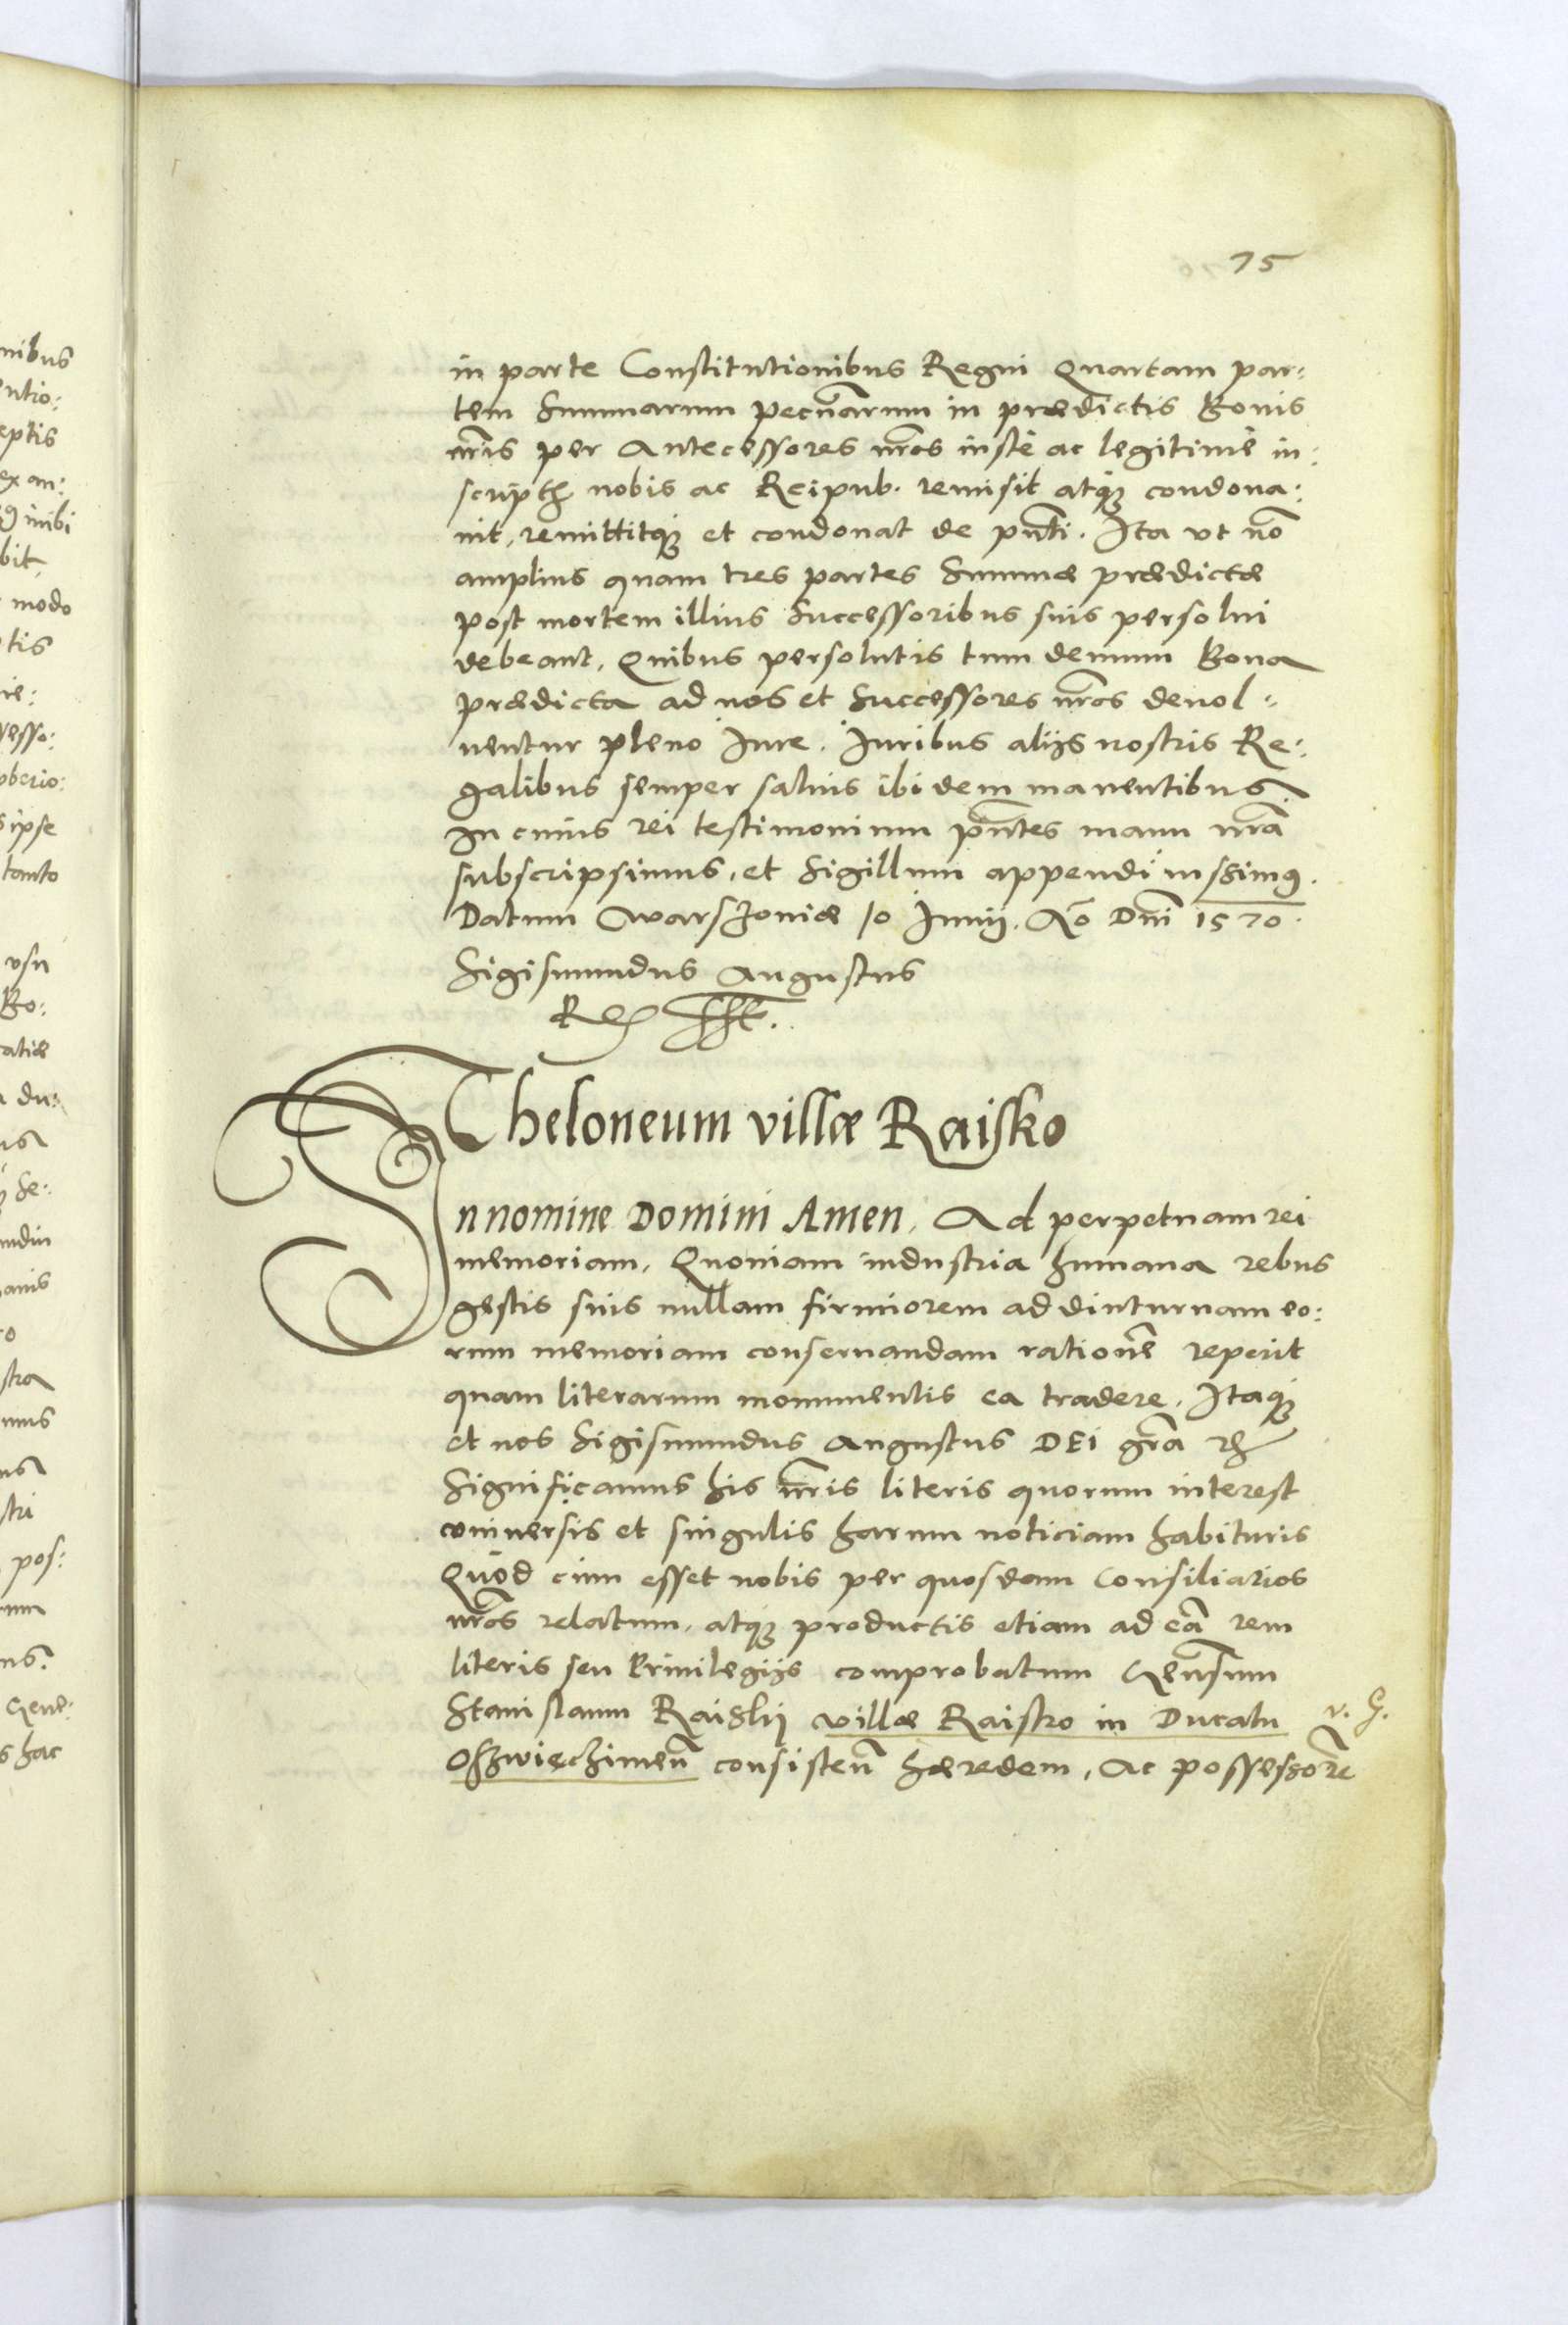 75
in parte Constitutionibus Regni Quartam par:
tem Summarum pecũarum in prædictis Bonis
nr̃is per Antecessores nr̃os iustè ac legitimè in:
script nobis ac Reipub. remisit atq; condona:
uit, remittitq; et condonat de pñti. Ita vt nõ
amplius quam tres partes Summæ prædictæ
post mortem illius Successoribus suis persolui
debeant. Quibus persolutis tum demum Bona
prædicta ad nos et Successores nr̃os deuol:
uentur pleno Iure. Iuribus alijs nostris Re:
galibus semper saluis ibidem manentibus.
In cuius rei testimonium pñtes manu nr̃a
subscripsimus, et Sigillum appendi iussimus.
Datum Warszouiæ 10 Iunij. Aõ Dñi 1570.
Sigismundus Augustus
Rex
Theloneum villæ Raisko
In nomine Domini Amen. Ad perpetuam rei
memoriam. Quoniam industria humana rebus
gestis suis nullam firmiorem ad diuturnam eo:
rum memoriam conseruandam rationẽ reperit
quam literarum monumentis ea tradere. Itaq;
et nos Sigismundus Augustus DEi gr̃a
Significamus his nr̃is literis quorum interest
vniuersis et singulis harum noticiam habituris
Quòd cùm esset nobis per quosdam Consiliarios
nr̃os relatum, atq; productis etiam ad eã rem
literis seu Priuilegijs comprobatum Gensum
Stanislaum Raiskij villæ Raisko in Ducatu
Oszwięchimeñ consisteñ hæredem, Ac possessorẽ